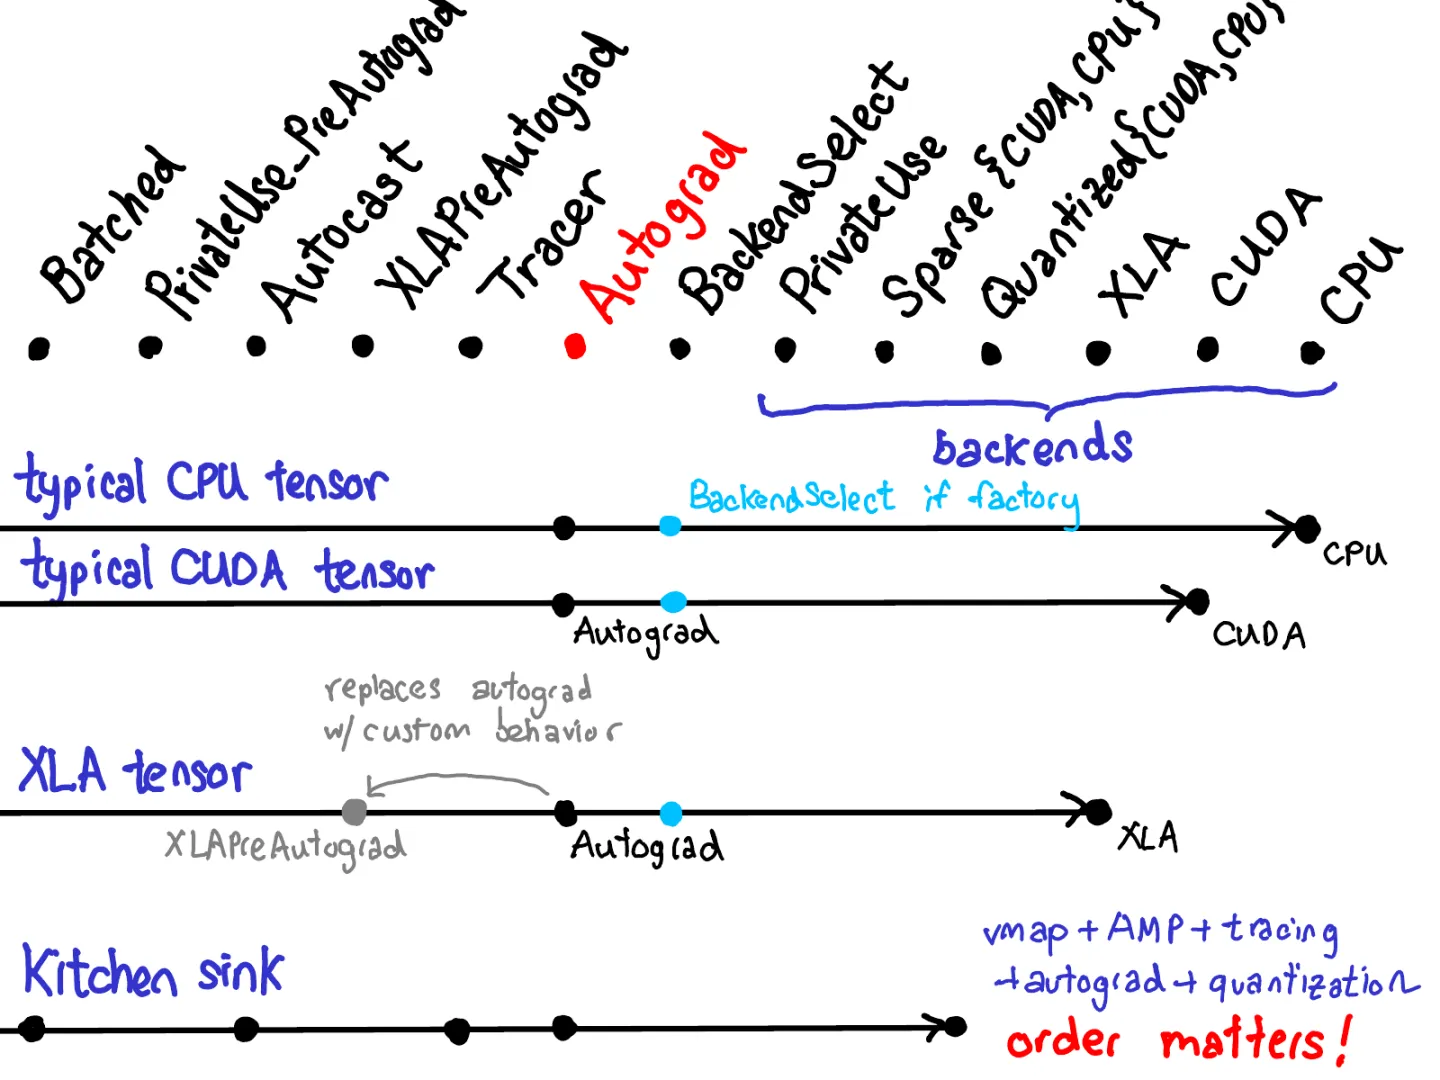 Batched
PrivateUse_PreAutograd
Autocast
XLAPreAutograd
Tracer
Autograd
BackendSelect
PrivateUse
Sparse {CUDA, CPU}
Quantized{CUDA, CPU}
XLA
CUDA
CPU
backends
typical CPU tensor
BackendSelect if factory
CPU
typical CUDA tensor
Autograd
CUDA
replaces autograd
w/ custom behavior
XLA tensor
XLAPreAutograd
Autograd
XLA
Kitchen sink
vmap + AMP + tracing
+ autograd + quantization
order matters!